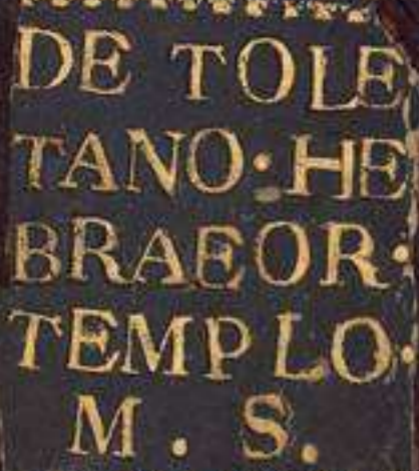 DE TOLE
TANO·HE
BRAEOR·
TEMPLO·
M. S.